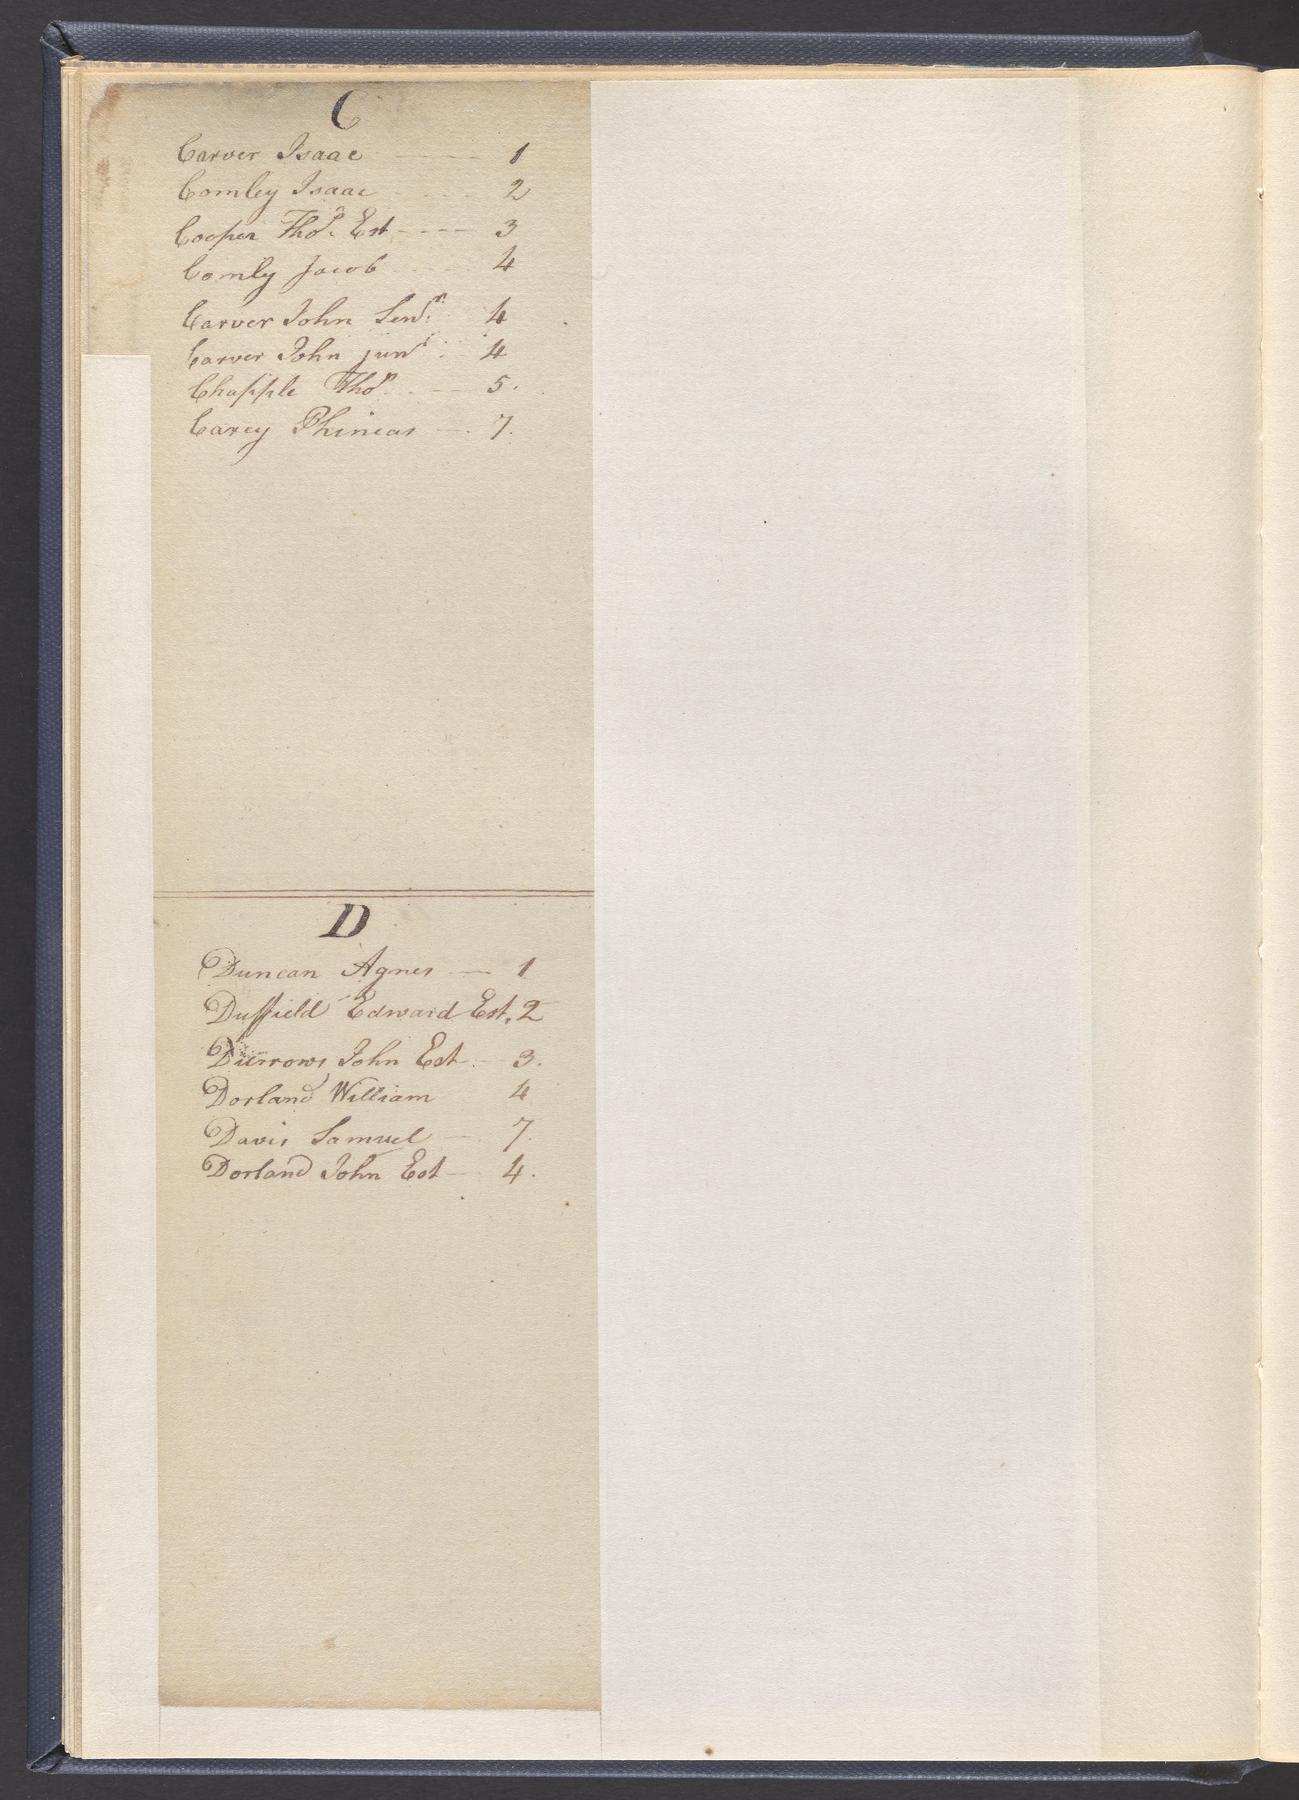 C
Carver Isaac 1
Comley Isaac 2
Cooper Thos. Est 3
Comly Jacob 4
Carver John Senr. 4
Carver John junr 4
Chapple Thos 5.
Carey Phineas 7.
D
Duncan Agnes 1
Duffield Edward Est. 2
Durrows John Est 3.
Dorland William 4
Davis Samuel 7.
Dorland John Est 4.